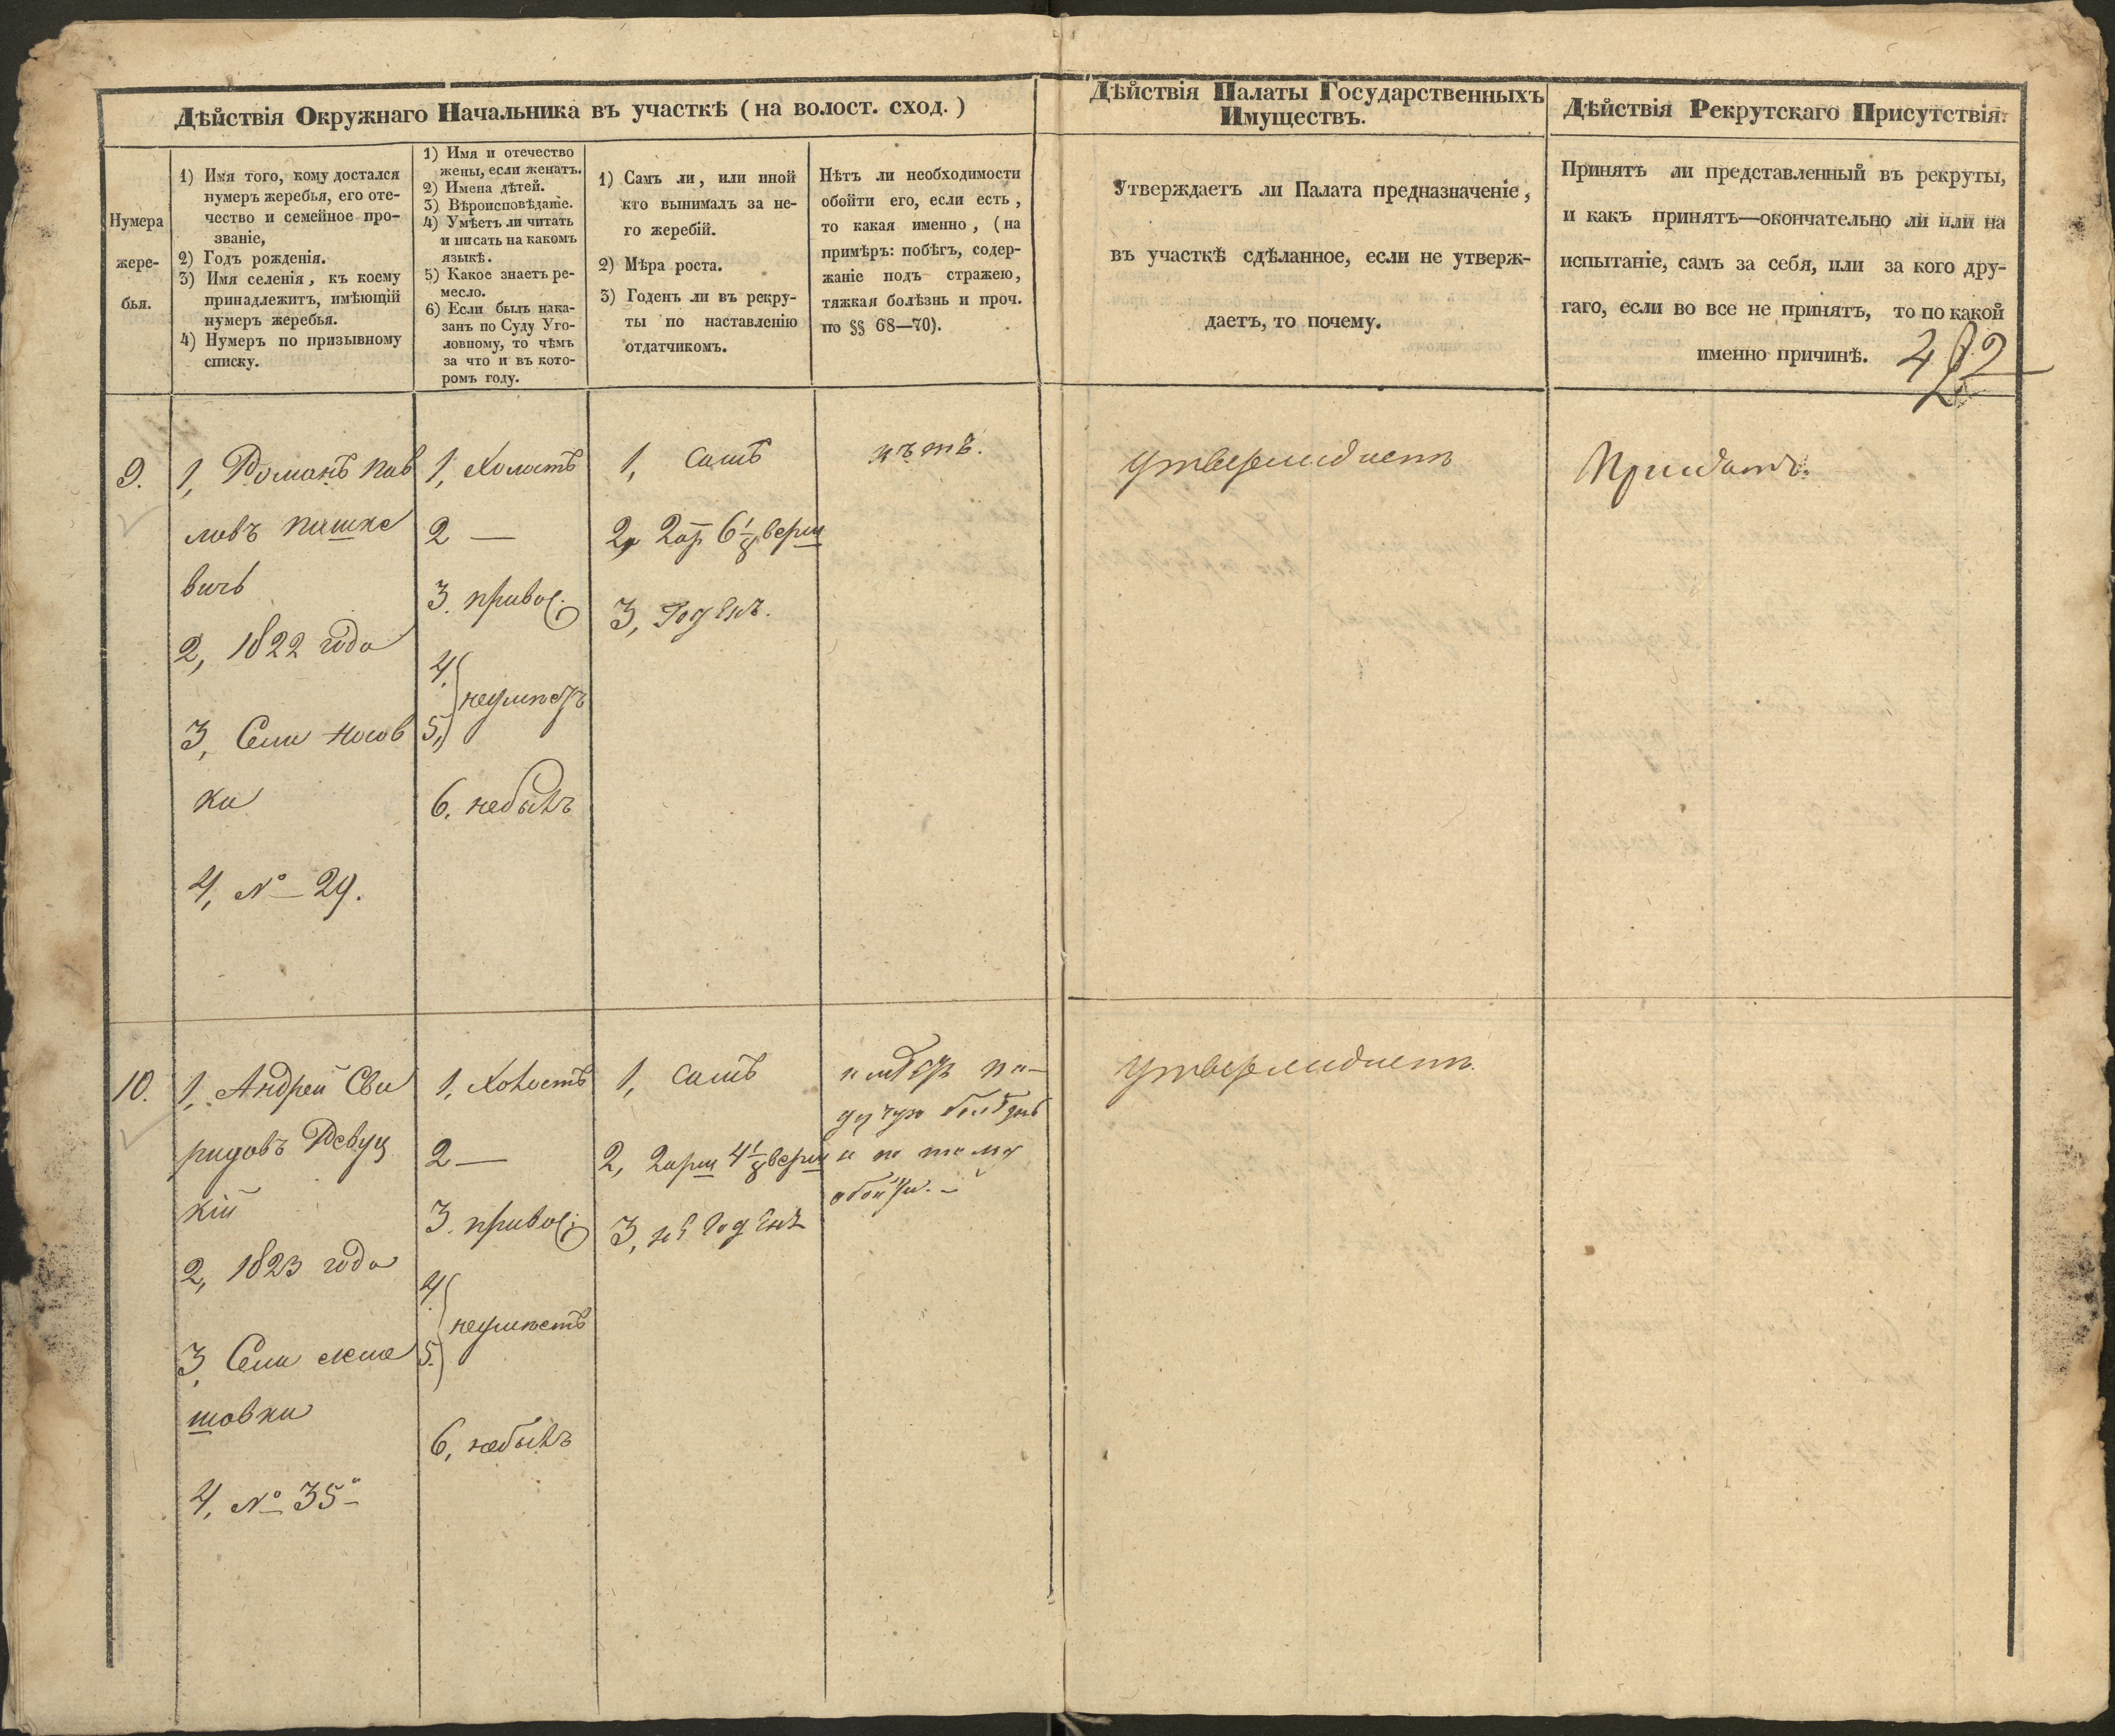 Дѣйствія Окружнаго Начальника въ участкѣ (на волост. сход.)
Дѣйствія Палаты Государственныхъ
Имуществъ.
Дѣйствія Рекрутскаго Присутствія.
Нумера
жере-
бья.
1) Имя того, кому достался
нумеръ жеребья, его оте-
чество и семейное про-
званіе,
2) Годъ рожденія.
3) Имя селенія, къ коему
принадлежитъ, имѣющій
нумеръ жеребья.
4) Нумеръ по призывному
списку.
1) Имя и отечество
жены, если женатъ.
2) Имена дѣтей.
3) Вѣроисповѣданіе.
4) Умѣетъ ли читать
и писать на какомъ
языкѣ.
5) Какое знаетъ ре-
месло.
6) Если былъ нака-
занъ по Суду Уго-
ловному, то чѣмъ
за что и въ кото-
ромъ году.
1) Самъ ли, или иной
кто вынималъ за не-
го жеребій.
2) Мѣра роста.
3) Годенъ ли въ рекру-
ты по наставленію
отдатчикомъ.
Нѣтъ ли необходимости
обойти его, если есть,
то какая именно, (на
примѣръ: побѣгъ, содер-
жаніе подъ стражею,
тяжкая болѣзнь и проч.
по §§ 68—70).
Утверждаетъ ли Палата предназначеніе,
въ участкѣ сдѣланное, если не утверж-
даетъ, то почему.
Принятъ ли представленный въ рекруты,
и какъ принятъ—окончательно ли или на
испытаніе, самъ за себя, или за кого дру-
гаго, если во все не принятъ, то по какой
именно причинѣ.
9.
1, Романъ Пав
ловъ Пашке
вичь
2, 1822 года
3, Села Носов
ки
4, № 29.
1, Холостъ
2 —
3. правос:
4.
неумѣетъ
5,
6. небылъ
1, Самъ
2, 2 ар 6 1/8 верш
3, Годенъ.
нѣтъ.
Утверждаетъ
10.
1, Андрей Сви
ридовъ Ревуц
кій
2, 1823 года
3, Села
шовки
4, № 35
1, Холостъ
2 —
3. правос:
4.
неумѣетъ
5.
6, небылъ
1, Самъ
2, 2 арш 4 1/8 верш
3, не Годенъ
имѣетъ па-
дучую болѣзнь
и по тому
обойти. —
Утверждаетъ.